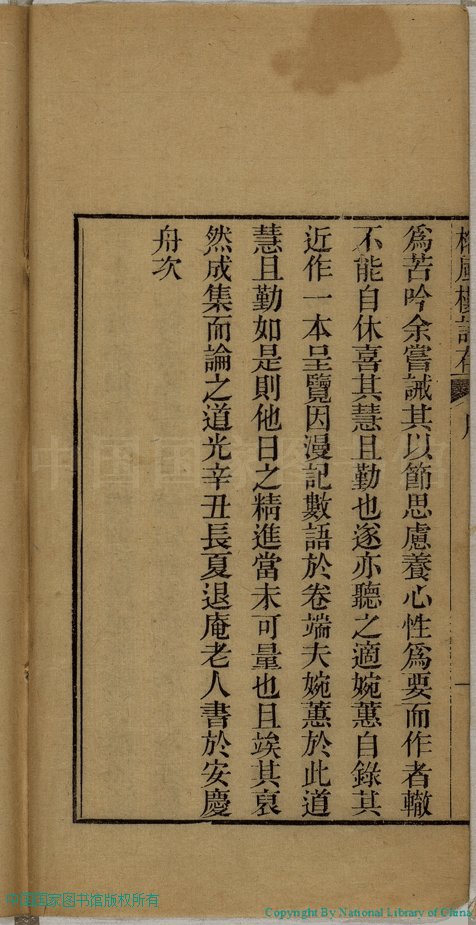 爲苦吟余嘗誡其以節思慮養心性爲要而作者轍
不能自休喜其慧且勤也遂亦聽之適婉蕙自錄其
近作一本呈覽因漫記數語於卷端夫婉蕙於此道
慧且勤如是則他日之精進當未可量也且竢其裒
然成集而論之道光辛丑長夏退庵老人書於安慶
舟次
中国国家图书馆
中国国家图书馆版权所有
Copyright By National Library of China